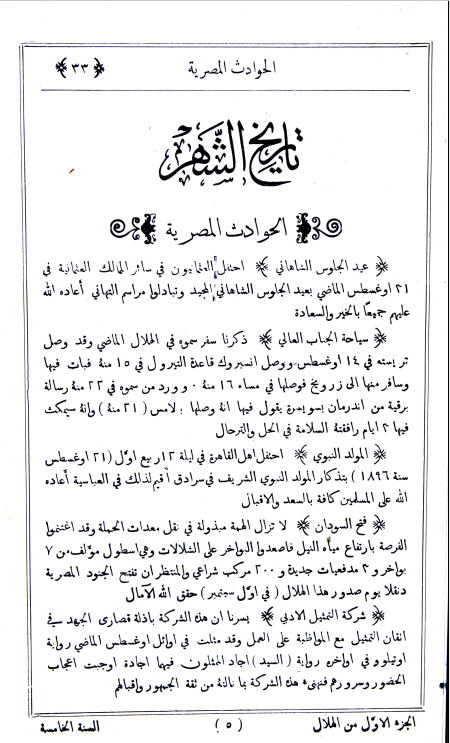 الحوادث المصرية
٣٣
تاريخ الشهر
الحوادث المصرية
عيد الجلوس الشاهاني احتفل العثمانيون في سائر الممالك العثمانية في
٢١ اوغسطس الماضي بعيد الجلوس الشاهاني المجيد وتبادلوا مراسم التهاني أعاده الله
عليهم جميعًا بالخير والسعادة
سياحة الجناب العالي ذكرنا سفر سموه في الهلال الماضي وقد وصل
تريسته في ١٤ اوغسطس ووصل انسبروك قاعدة التيرول في ١٥ منهُ فبات فيها
وسافر منها الى زوريخ فوصلها في مساء ١٦ منهُ ٠ وورد من سموه في ٢٢ منهُ رسالة
برقية من اندرمان بسويسرة يقول فيها انهُ وصلها بالامس (٢١ منهُ) وانهُ سيمكث
فيها ٢ ايام رافقتهُ السلامة في الحل والترحال
المولد النبوي احتفل اهل القاهرة في ليلة ١٢ ربيع اوّل (٢١ اوغسطس
سنة ١٨٩٦) بتذكار المولد النبوي الشريف في سرادق أقيم لذلك في العباسية أعاده
الله على المسلمين كافة بالسعد والاقبال
فتح السودان لا تزال الهمة مبذولة في نقل معدات الحملة وقد اغتنموا
الفرصة بارتفاع مياه النيل فاصعدوا البواخر على الشلالات وهي اسطول مؤلف من ٧
بواخر و٢ مدفعيات جديدة و ٢٠٠ مركب شراعي والمنتظر ان تفتح الجنود المصرية
دنقلا يوم صدور هذا الهلال (في اوّل سبتمبر) حقق الله الآمال
شركة التمثيل الادبي يسرنا ان هذه الشركة باذلة قصارى الجهد في
اتقان التمثيل مع المواظبة على العمل وقد مثلت في اوائل اوغسطس الماضي رواية
اوتيلو و في اواخره رواية (السيد) اجاد الممثلون فيها اجادة اوجبت اعجاب
الحضور وسرورهم فنهنىء هذه الشركة بما نالتهُ من ثقة الجمهور واقبالهم
الجزء الاوّل من الهلال
(٥)
السنة الخامسة